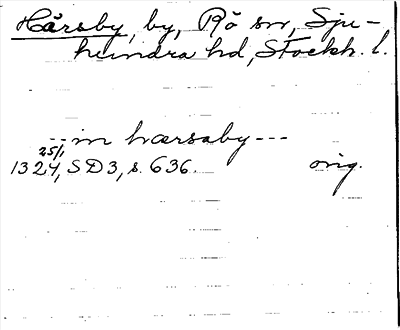 Hårsby, by, Rö sn, Sju-
hundra hd, Stockh. l.
--- in hærsaby ---
25/1
1324, SD3, s. 636. orig.